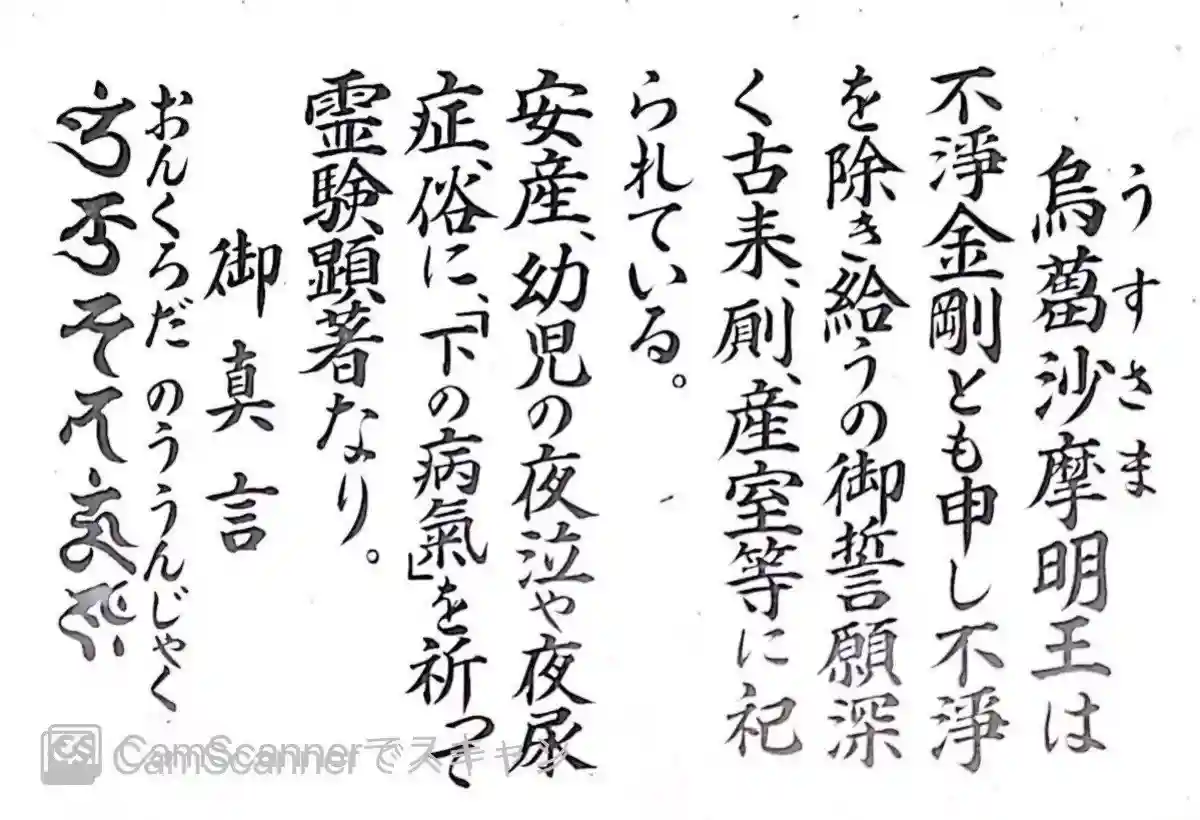 うすさま
烏蒭沙摩明王は
不淨金剛とも申し不淨
を除き給うの御誓願深
く古来、厠、産室等に祀
られている。
安産、幼児の夜泣や夜尿
症、俗に、「下の病氣」を祈って
霊験顕著なり。
御真言
おんくろだ のううんじゃく
CamScannerでスキャン